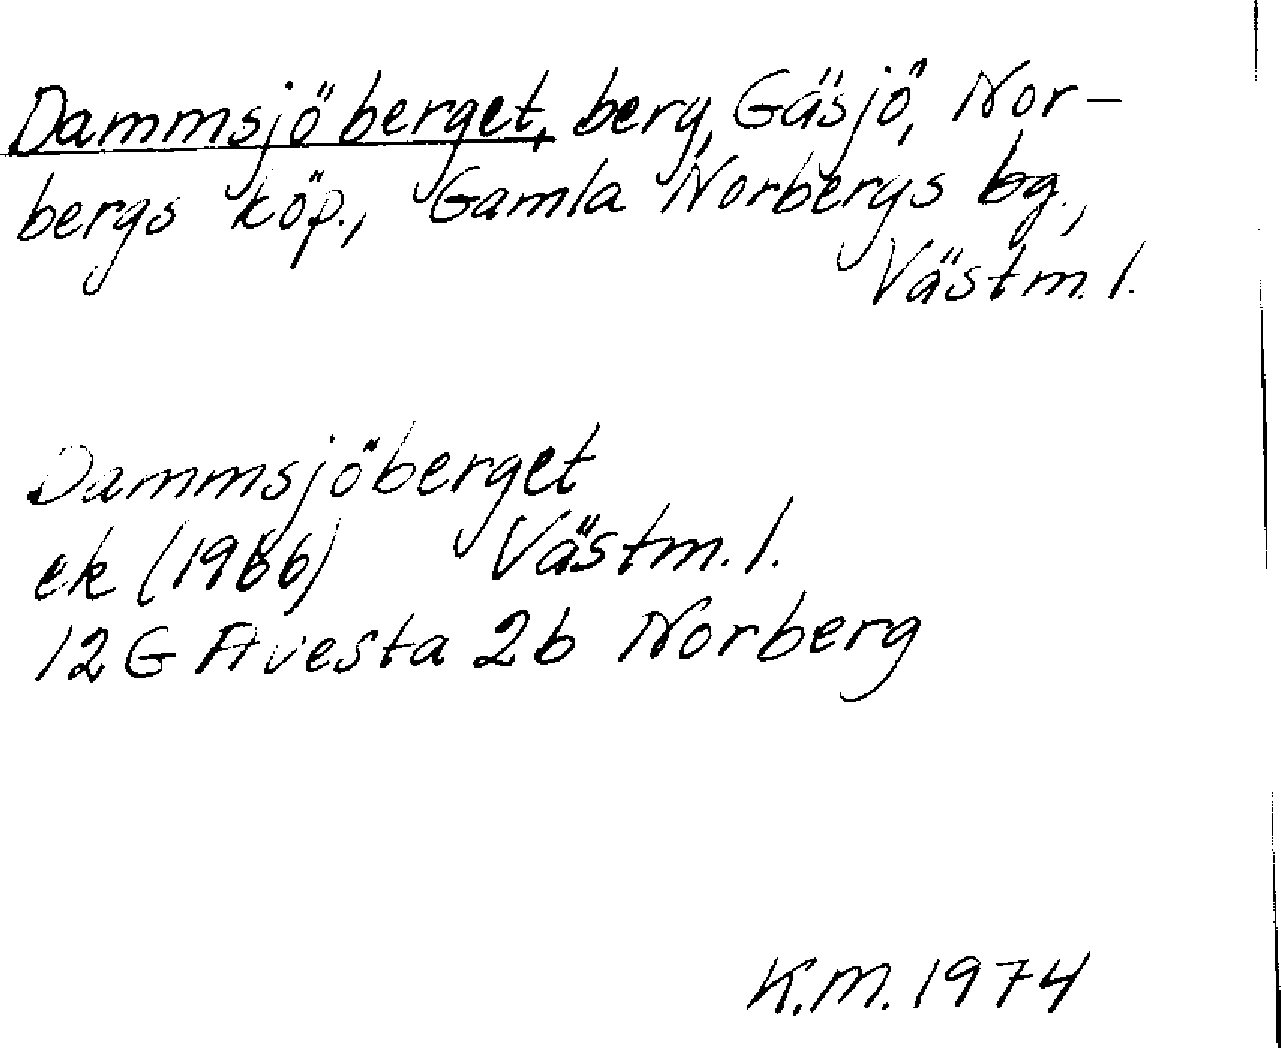 Dammsjöberget, berg, Gäsjö, Nor-
bergs köp., Gamla Norbergs bg.,
Västm. l.
Dammsjöberget
ek (1966) Västm. l.
12G Avesta 2b Norberg
K.M. 1974